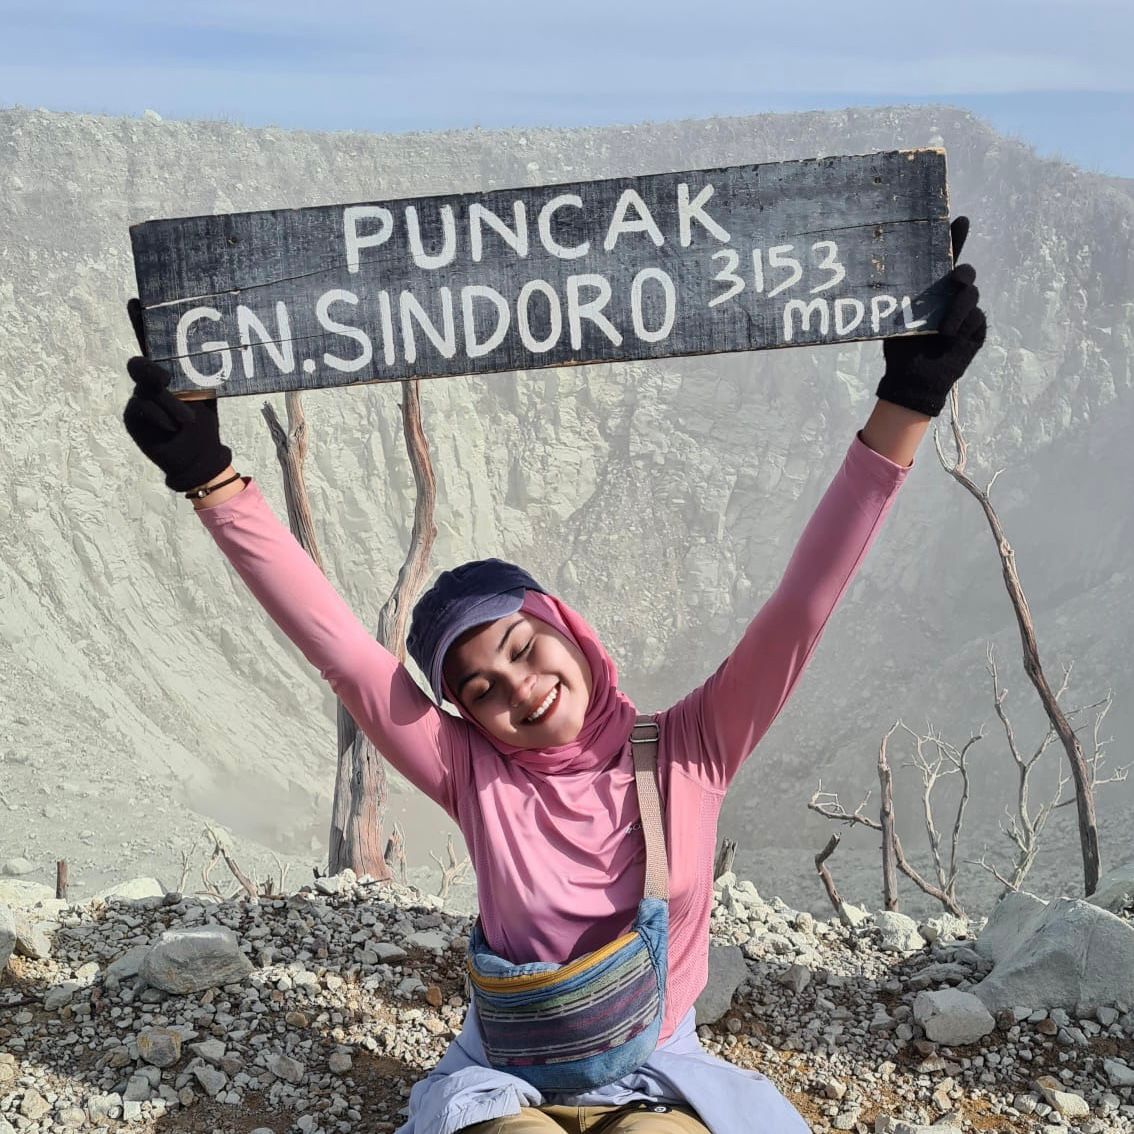 PUNCAK
GN.SINDORO 3153
MDPL